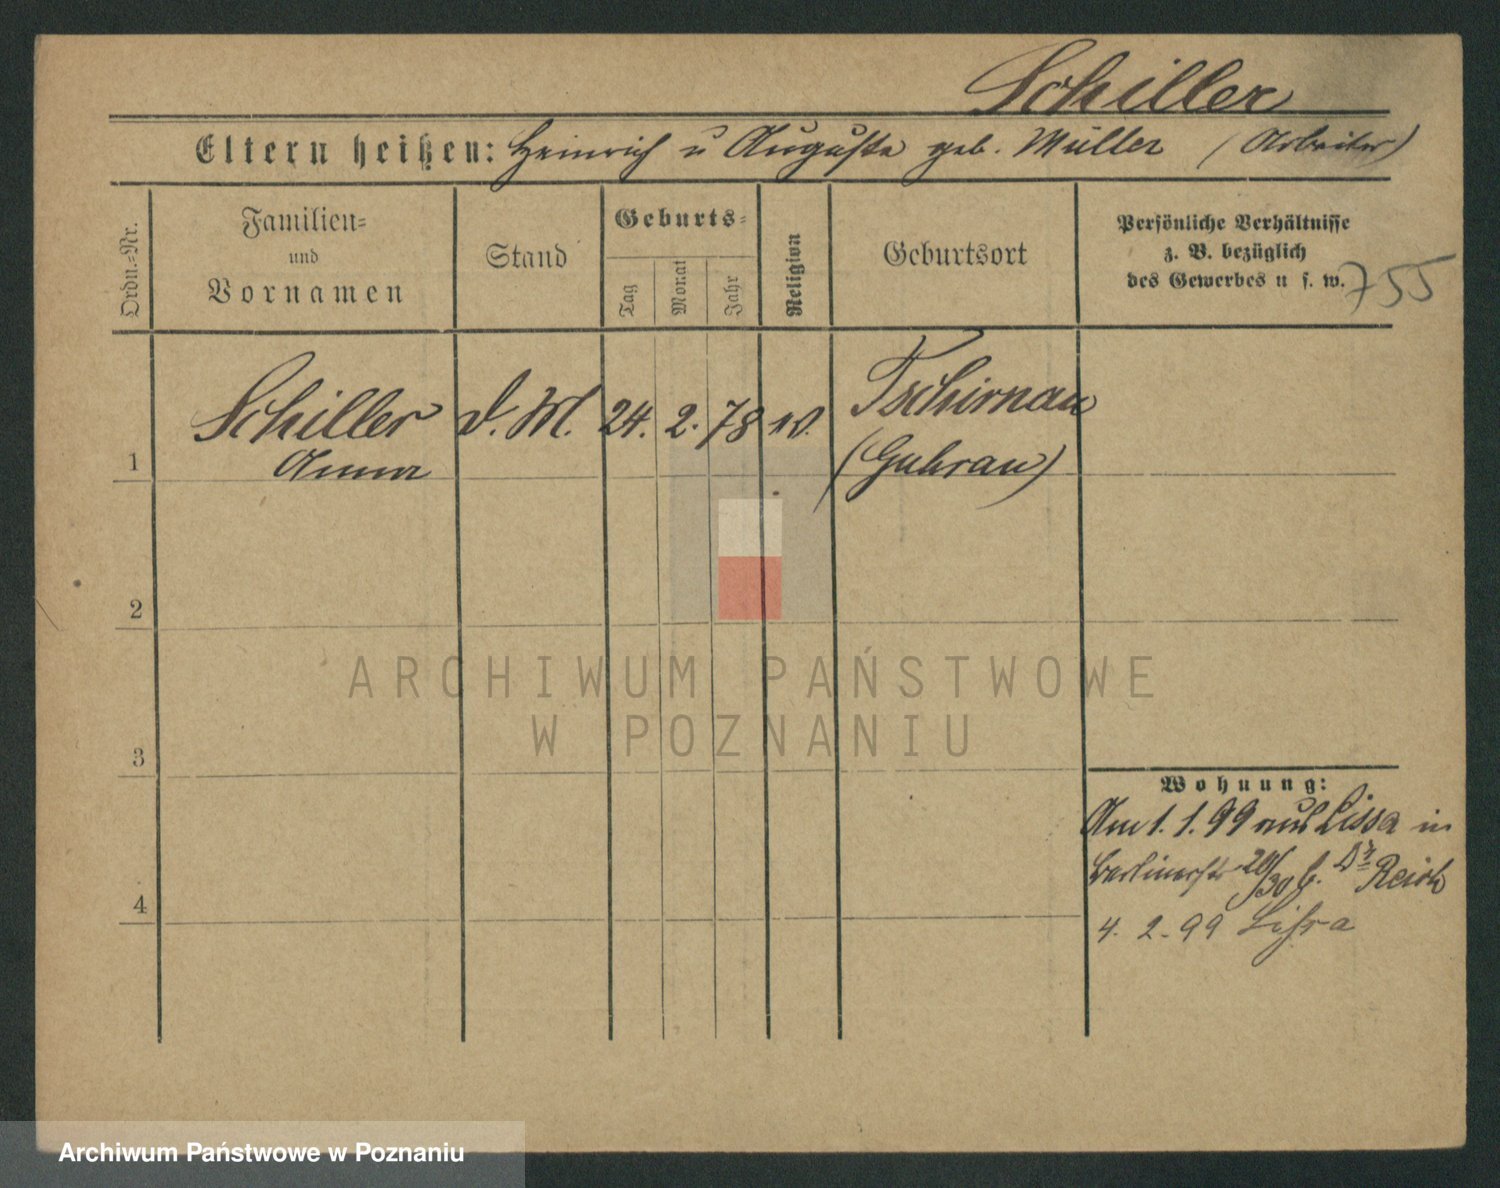 Schiller
Eltern heißen: Heinrich u Auguste geb. Müller (Arbeiter)
Ordn.-Nr.
Familien-
und
Vornamen
Stand
Geburts-
Tag
Monat
Jahr
Religion
Geburtsort
Persönliche Verhältnisse
z. B. bezüglich
des Gewerbes u s. w.
755
1
Schiller
Anna
d. M.
24. 2. 78
Tschirnau
(Guhrau)
2
3
4
Wohnung:
Am 1. 1. 99 aus Lissa in
Berlinerstr 20/30 b. Reich
4. 2. 99 Lissa
ARCHIWUM PAŃSTWOWE
W POZNANIU
Archiwum Państwowe w Poznaniu